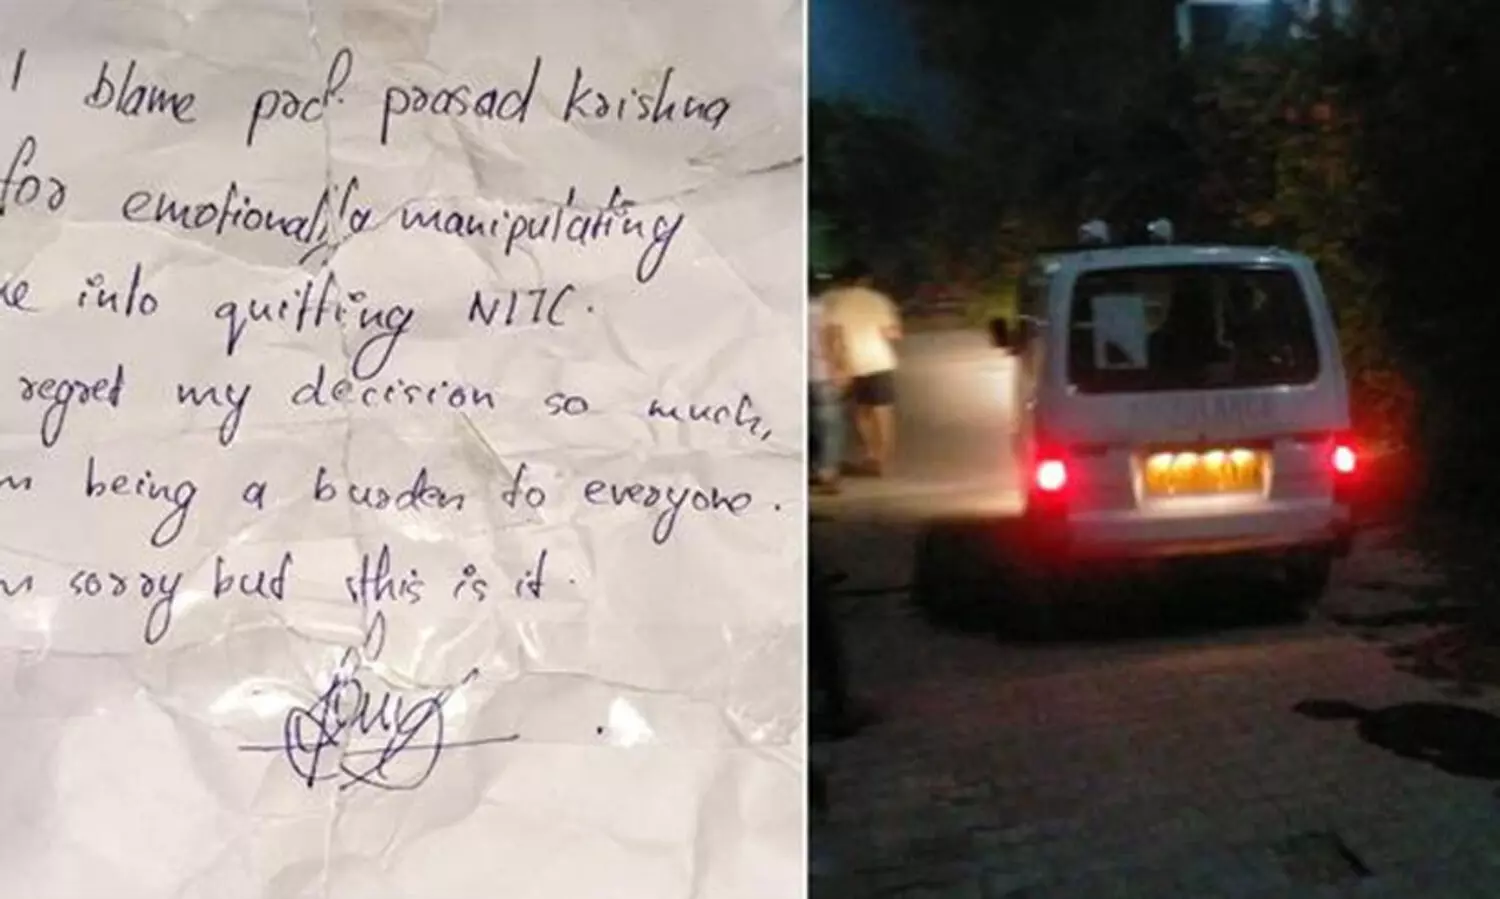 I blame prof. prasad krishna
for emotionally manipulating
me into quitting NITC.
regret my decision so much,
being a burden to everyone.
sorry but this is it.
AMBULANCE